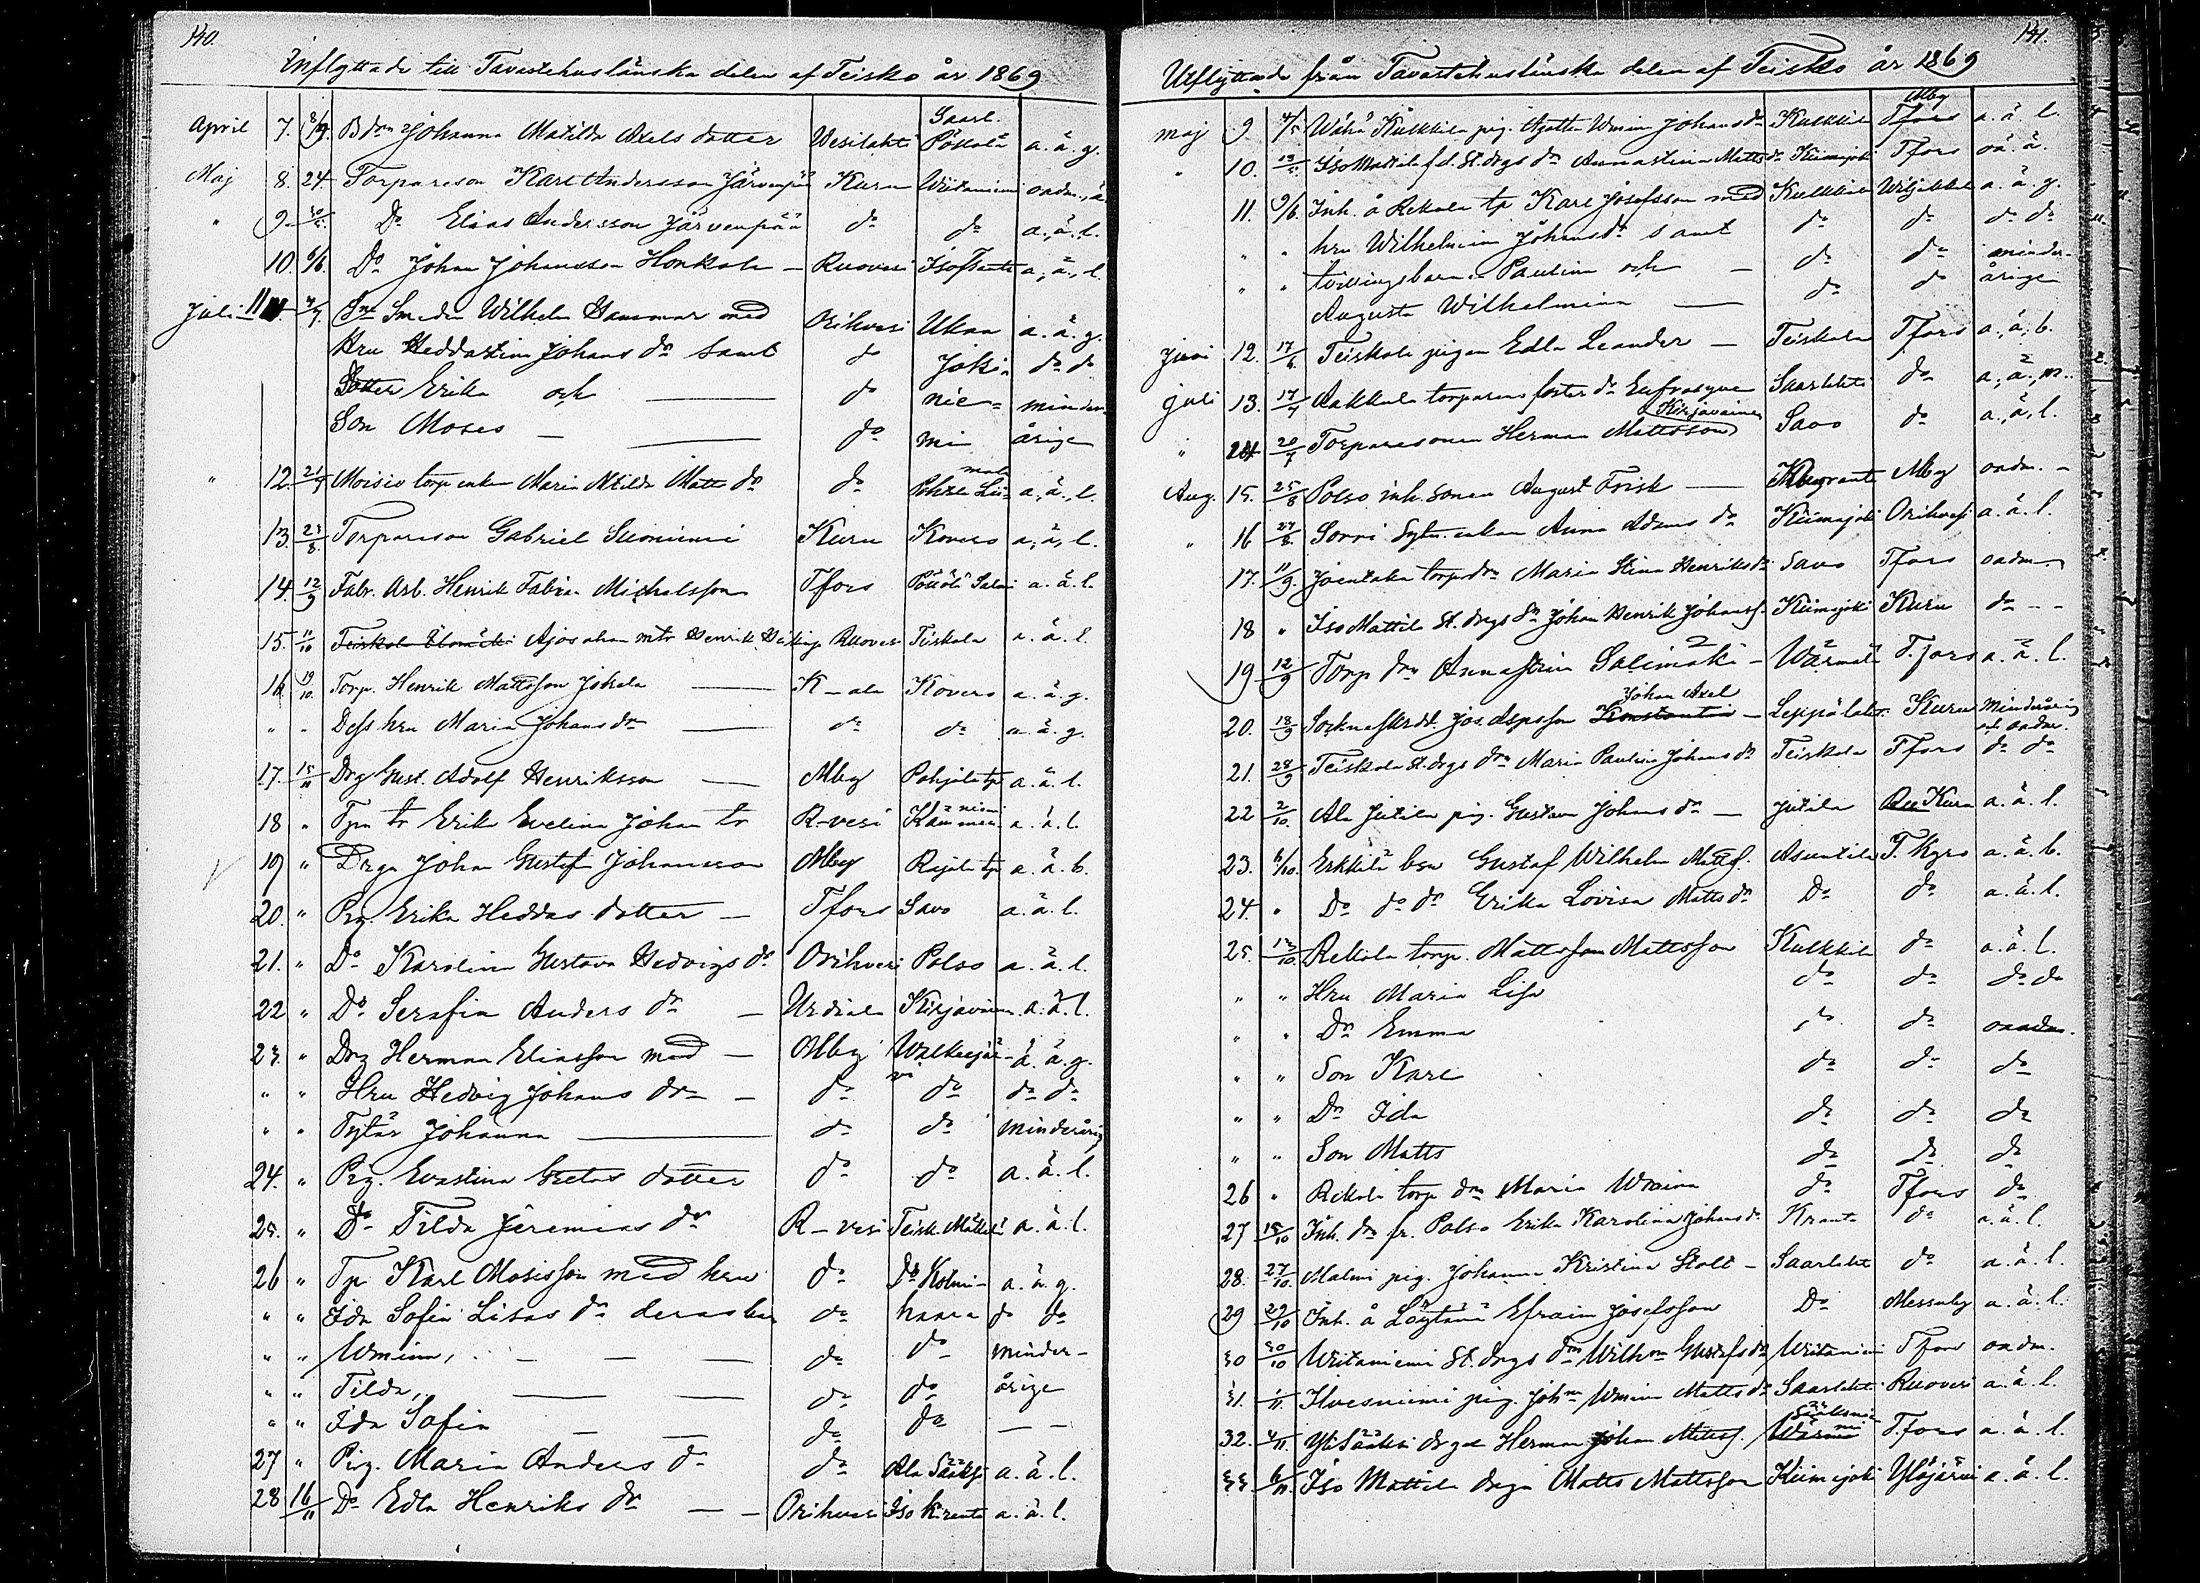 140.
Inflyttade till Tavastehuslänska delen af Teisko år 1869
April 7. 8/9. Bdrn Johanna Matilda Axels dotter Vesilaht Saarl. Pöllölä a. ä. g.
Maj 8. 24 Torpareson Karl Andersson Järvenpää Kuru Viitaniemi oadm., ä
" 9. 30/5. Do Elias Andersson Järvenpää do do a., ä. l.
10. 6/6. Do Johan Johansson Honkala — Ruovesi a., ä., l.
Juli 11. 4/7. Smeden Wilhelm Hammar med Orihvesi Ukaa a. ä. g.
Hru Heddastina Johans dr samt do joki- do do
Dotter Erika och — do nie- minder-
Son Moses — — do mi årige
" 12. 21/7 Moisio torp enkan Maria Mtilda Matts dr do a., ä., l.
13. 23/8. Torpareson Gabriel Suoniemi Kuru Kovero a., ä., l.
14. 12/9 Fabr. Arb. Henrik Fabian Michelsson Tfors Pöllölä Salmi a. ä. l.
15. 11/10 Ajos ahon mtr Henrik Ruovesi Teiskola a. ä. l.
16. 19/10. Torp. Henrik Mattsson Jokela — K-ala Kovero a. ä. g.
" " Dess hru Maria Johans dr — do do a. ä. g.
17. 15/11 Drg Gust. Adolf Henriksson — Mby Pohjola tp a. ä. l.
18 " Tpn tr Erika Evelina Johan tr R-vesi a. ä. l.
19 " Drgn Johan Gustaf Johansson Mby Rajala tp a. ä. b.
20. " Pig. Erika Heddas dotter — Tfors Savo a. ä. l.
21. " Do Karolina Gustava Hedvigs dr Orihvesi Polso a. ä. l.
22 " Do Serafia Anders dr — Urdiala Kirjavain a. ä. l.
23. " Drg Herman Eliasson med — Mby Walkeejär- a. ä. g.
" " Hru Hedvig Johans dr — do vi do do do
" " Tytär Johanna — do do minderårig
24. " Pig. Evastina Gretas dotter do do a. ä. l.
25. " Do Tilda Jeremias dr R-vesi Teisk. Mattila a. ä. l.
26 " Tp Karl Mosisson med hru do Do Kolmi- a. ä. g.
" " Ida Sofia Lisas dr deras bar do haara do do
" " Wmina, — — — do do minder-
" " Tilda, — — do do årige
" " Ida Sofia — — do do — —
27 " Pig. Maria Anders dr do Ala Sääksj a. ä. l.
28 16/11 Do Edla Henriks dr — — Orihvesi Iso Kranta a. ä. l.
141.
Utflyttade från Tavastehuslänska delen af Teisko år 1869
Maj 9 4/5 Wähä Kulkkila pig. Agatha Wmina Johans dr Kulkkila Mby Tfors a. ä. l.
" 10. 13/5 Iso Mattila f.d. St. drgs dr Annastina Matts dr Kiimajoki Tfors oä. ä.
11. 9/6. Inh. å Rekola tp Karl Josefsson med Kulkkila Wiljakkal a. ä. g.
" " hru Wilhelmina Johans dr samt do do do do
" " tvillingsbarn Paulina och — do do minder-
Augusta Wilhelmina — do do årige
Juni 12. 17/6 Teiskola pigan Edla Leander — Teiskola Tfors a., ä., b.
Juli 13. 17/7 Aakkula torparens foster dr Eufrosyne Saarlahti do a., ä., m.
" 14 20/7 Torparesonen Herman Mattsson Kirjavainen Savo do a., ä., l.
Aug. 15. 25/8 Polso inh. sonen August Frisk — Mby oadm. -
" 16 27/8. Sorri Sytn. enkan Anna Adams dr Kiimajoki Orihvesi a. ä. l.
17. 11/9. Juentaka torp drn Maria Stina Henriks dr Savo Tfors oadm.
18 " Iso Mattila St. drgs Sn Johan Henrik Johanss. Kiimajoki Kuru do - -
19 12/9 Torp drn Annastina Salimäki — Värmälä T.fors a. ä. l.
20. 18/9 Jos. Aspsson Johan Axel Konstantin — Leppälaht. Kuru Minderårig och oadm.
21. 28/9 Teiskola St. drgs drn Maria Paulina Johans dr Teiskola Tfors do do
22 2/10. Ala Jutila pig. Gustava Johans dr — Jutila Kuru a. ä. l.
23. 6/10. Erkkilä bsn Gustaf Wilhelm Mattss. Asuntila T. Kyro a. ä. b.
24. " Do do dr Erika Lovisa Matts dr Do do a. ä. l.
25. 13/10. Rekola torp. Matts Mattsson Kulkkila do a. ä. l.
" " Hru Maria Lisa do do do do
" " Dr Emma do do oadm.
" " Son Karl do do do
" " Dr Ida do do do
" " Son Matts do do do
26 " Rekola torp drn Maria Wmina do Tfors do
27 15/10 Inh. drn fr. Polso Erika Karolina Johans dr Kranta do a. ä. l.
28. 27/10. Malmi pig. Johanna Kristina Stolt — Saarlaht do a. ä. l.
29 29/10 Inh. å Löytänä Efraim Josefsson Do Messuby a. ä. l.
30 30/10 Viitaniemi St. drgs drn Wilhma Gustafs dr Viitaniemi Tfors oadm.
31. 1/11. Ilvesniemi pig. Johna Wmina Matts dr Saarlahti Ruovesi a. ä. l.
32. 4/11. Yli Sääksi drgen Herman Johan Mattss. Sääksniemi T.fors a. ä. l.
33. 6/11. Iso Mattila drgn Matts Mattsson Kiimajoki Ylöjärvi a. ä. l.